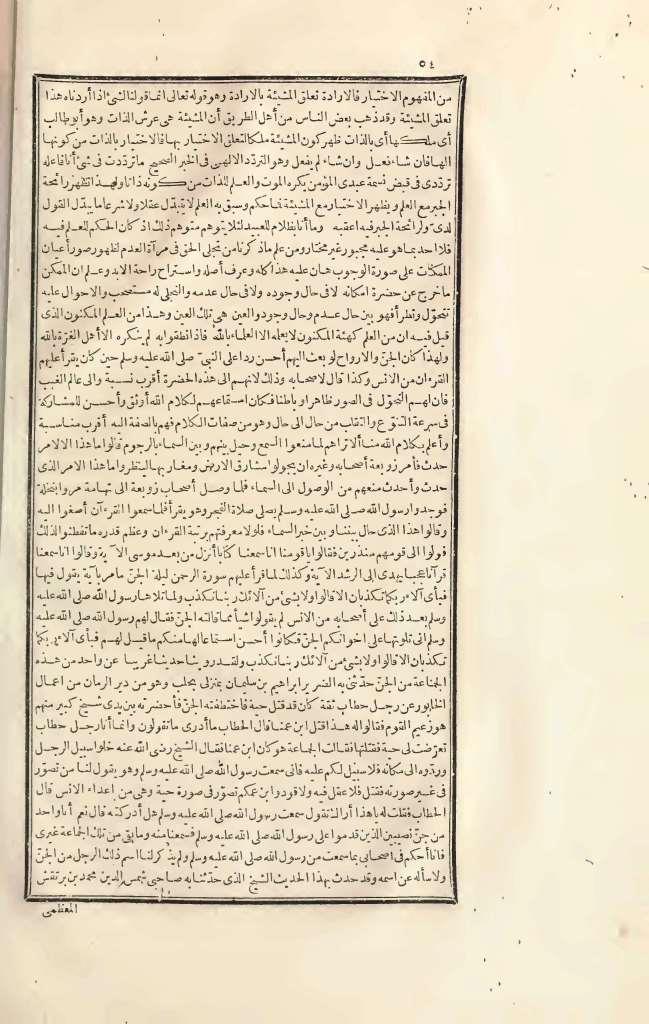 ٥٤
من المفهوم الاختيار فالارادة تعلق المشيئة بالارادة وهو قوله تعالى انما قولنا لشئ اذا أردناه هذا
تعلق المشيئة وقد ذهب بعض الناس من أهل الطريق أن المشيئة هى عرش الذات وهو أبو طالب
أى ملكها أى بالذات ظهر كون المشيئة ملكا لتعلق الاختيار بها فالاختيار بالذات من كونها
الها فان شاء فعل وان شاء لم يفعل وهو التردد الالهى فى الخبر الصحيح ما ترددت فى شئ أنا فاعله
ترددى فى قبض نسمة عبدى المؤمن يكره الموت والعلم للذات من كونه ذاتا ولهذا تظهر رائحة
الجبر مع العلم ويظهر الاختيار مع المشيئة فما حكم وسبق به العلم لا يتبدل عقلا ولا شرعا ما يبدل القول
لدى ولرائحة الجبر فيه أعقبه وما أنا بظلام للعبيد لئلا يتوهم متوهم ذلك اذ كان الحكم للعلم فيه
فلا أحد بما هو عليه مجبور غير مختار ومن علم ما ذكرنا من تجلى الحق فى مرآة العدم لظهور صور أعيان
الممكنات على صورة الوجوب هان عليه هذا كله وعرف أصله واستراح راحة الابد وعلم ان الممكن
ما خرج عن حضرة امكانه لا فى حال وجوده ولا فى حال عدمه والتجلى له مستصحب والاحوال عليه
تتحول وتطرأ فهو بين حال عدم وحال وجود والعين هى تلك العين وهذا من العلم المكنون الذى
قيل فيه ان من العلم كهيئة المكنون لا يعلمه الا العلماء بالله فاذا نطقوا به لم ينكره الا أهل الغرة بالله
ولهذا كان الجن والارواح لو بعث اليهم أحسن ردا على النبى صلى الله عليه وسلم حين كان يقرأ عليهم
القرءان من الانس وكذا قال لاصحابه وذلك لانهم الى هذه الحضرة أقرب نسبة والى عالم الغيب
فان لهم التحول فى الصور ظاهرا وباطنا فكان استماعهم لكلام الله أوثق وأحسن للمشاركة
فى سرعة التنوع والتقلب من حال الى حال وهو من صفات الكلام فهم بالصفة اليه أقرب مناسبة
وأعلم بكلام الله منا ألا تراهم لما منعوا السمع وحيل بينهم وبين السماء بالرجوم قالوا ما هذا الالامر
حدث فأمر زوبعة أصحابه وغيره أن يجولوا مشارق الارض ومغاربها لينظروا ما هذا الامر الذى
حدث وأحدث منعهم من الوصول الى السماء فلما وصل أصحاب زوبعة الى تهامة مروا بنخلة
فوجدوا رسول الله صلى الله عليه وسلم يصلى صلاة الفجر وهو يقرأ فلما سمعوا القرءان أصغوا اليه
وقالوا هذا الذى حال بيننا وبين خبر السماء فلولا معرفتهم برتبة القرءان وعظم قدره ما تفطنوا لذلك
فولوا الى قومهم منذرين فقالوا يا قومنا انا سمعنا كتابا أنزل من بعد موسى الآية وقالوا انا سمعنا
قرآنا عجبا يهدى الى الرشد الآية وكذلك لما قرأ عليهم سورة الرحمن ليلة الجن ما مر بآية يقول فيها
فبأى آلاء ربكما تكذبان الا قالوا ولا بشئ من آلائك ربنا نكذب ولما تلاها رسول الله صلى الله عليه
وسلم بعد ذلك على أصحابه من الانس لم يقولوا شيأ مما قالته الجن فقال لهم رسول الله صلى الله عليه
وسلم انى تلوتها على اخوانكم الجن فكانوا أحسن استماعا لها منكم ما قيل لهم فبأى آلاء ربكما
تكذبان الا قالوا ولا بشئ من آلائك ربنا نكذب ولقد روينا حديثا غريبا عن واحد من هذه
الجماعة من الجن حدثنى به الضرير ابراهيم بن سليمان بمنزلى بحلب وهو من دير الرمان من أعمال
الخابور عن رجل حطاب ثقة كان قد قتل حية فاختطفته الجن فأحضرته بين يدى شيخ كبير منهم
هو زعيم القوم فقالوا له هذا قتل ابن عمنا قال الحطاب ما أدرى ما تقولون وانما أنا رجل حطاب
تعرضت لى حية فقتلتها فقالت الجماعة هو كان ابن عمنا فقال الشيخ رضى الله عنه خلوا سبيل الرجل
وردوه الى مكانه فلا سبيل لكم عليه فانى سمعت رسول الله صلى الله عليه وسلم وهو يقول لنا من تصور
فى غير صورته فقتل فلا عقل فيه ولا قود وابن عمكم تصور فى صورة حية وهى من اعداء الانس قال
الحطاب فقلت له يا هذا أراك تقول سمعت رسول الله صلى الله عليه وسلم هل أدركته قال نعم أنا واحد
من جن نصيبين الذين قدموا على رسول الله صلى الله عليه وسلم فسمعنا منه وما بقى من تلك الجماعة غيرى
فانا أحكم فى أصحابى بما سمعت من رسول الله صلى الله عليه وسلم ولم يذكر لنا اسم ذلك الرجل من الجن
ولا سأله عن اسمه وقد حدث بهذا الحديث الشيخ الذى حدثنا به صاحبى شمس الدين محمد بن برتقش
المعظمى